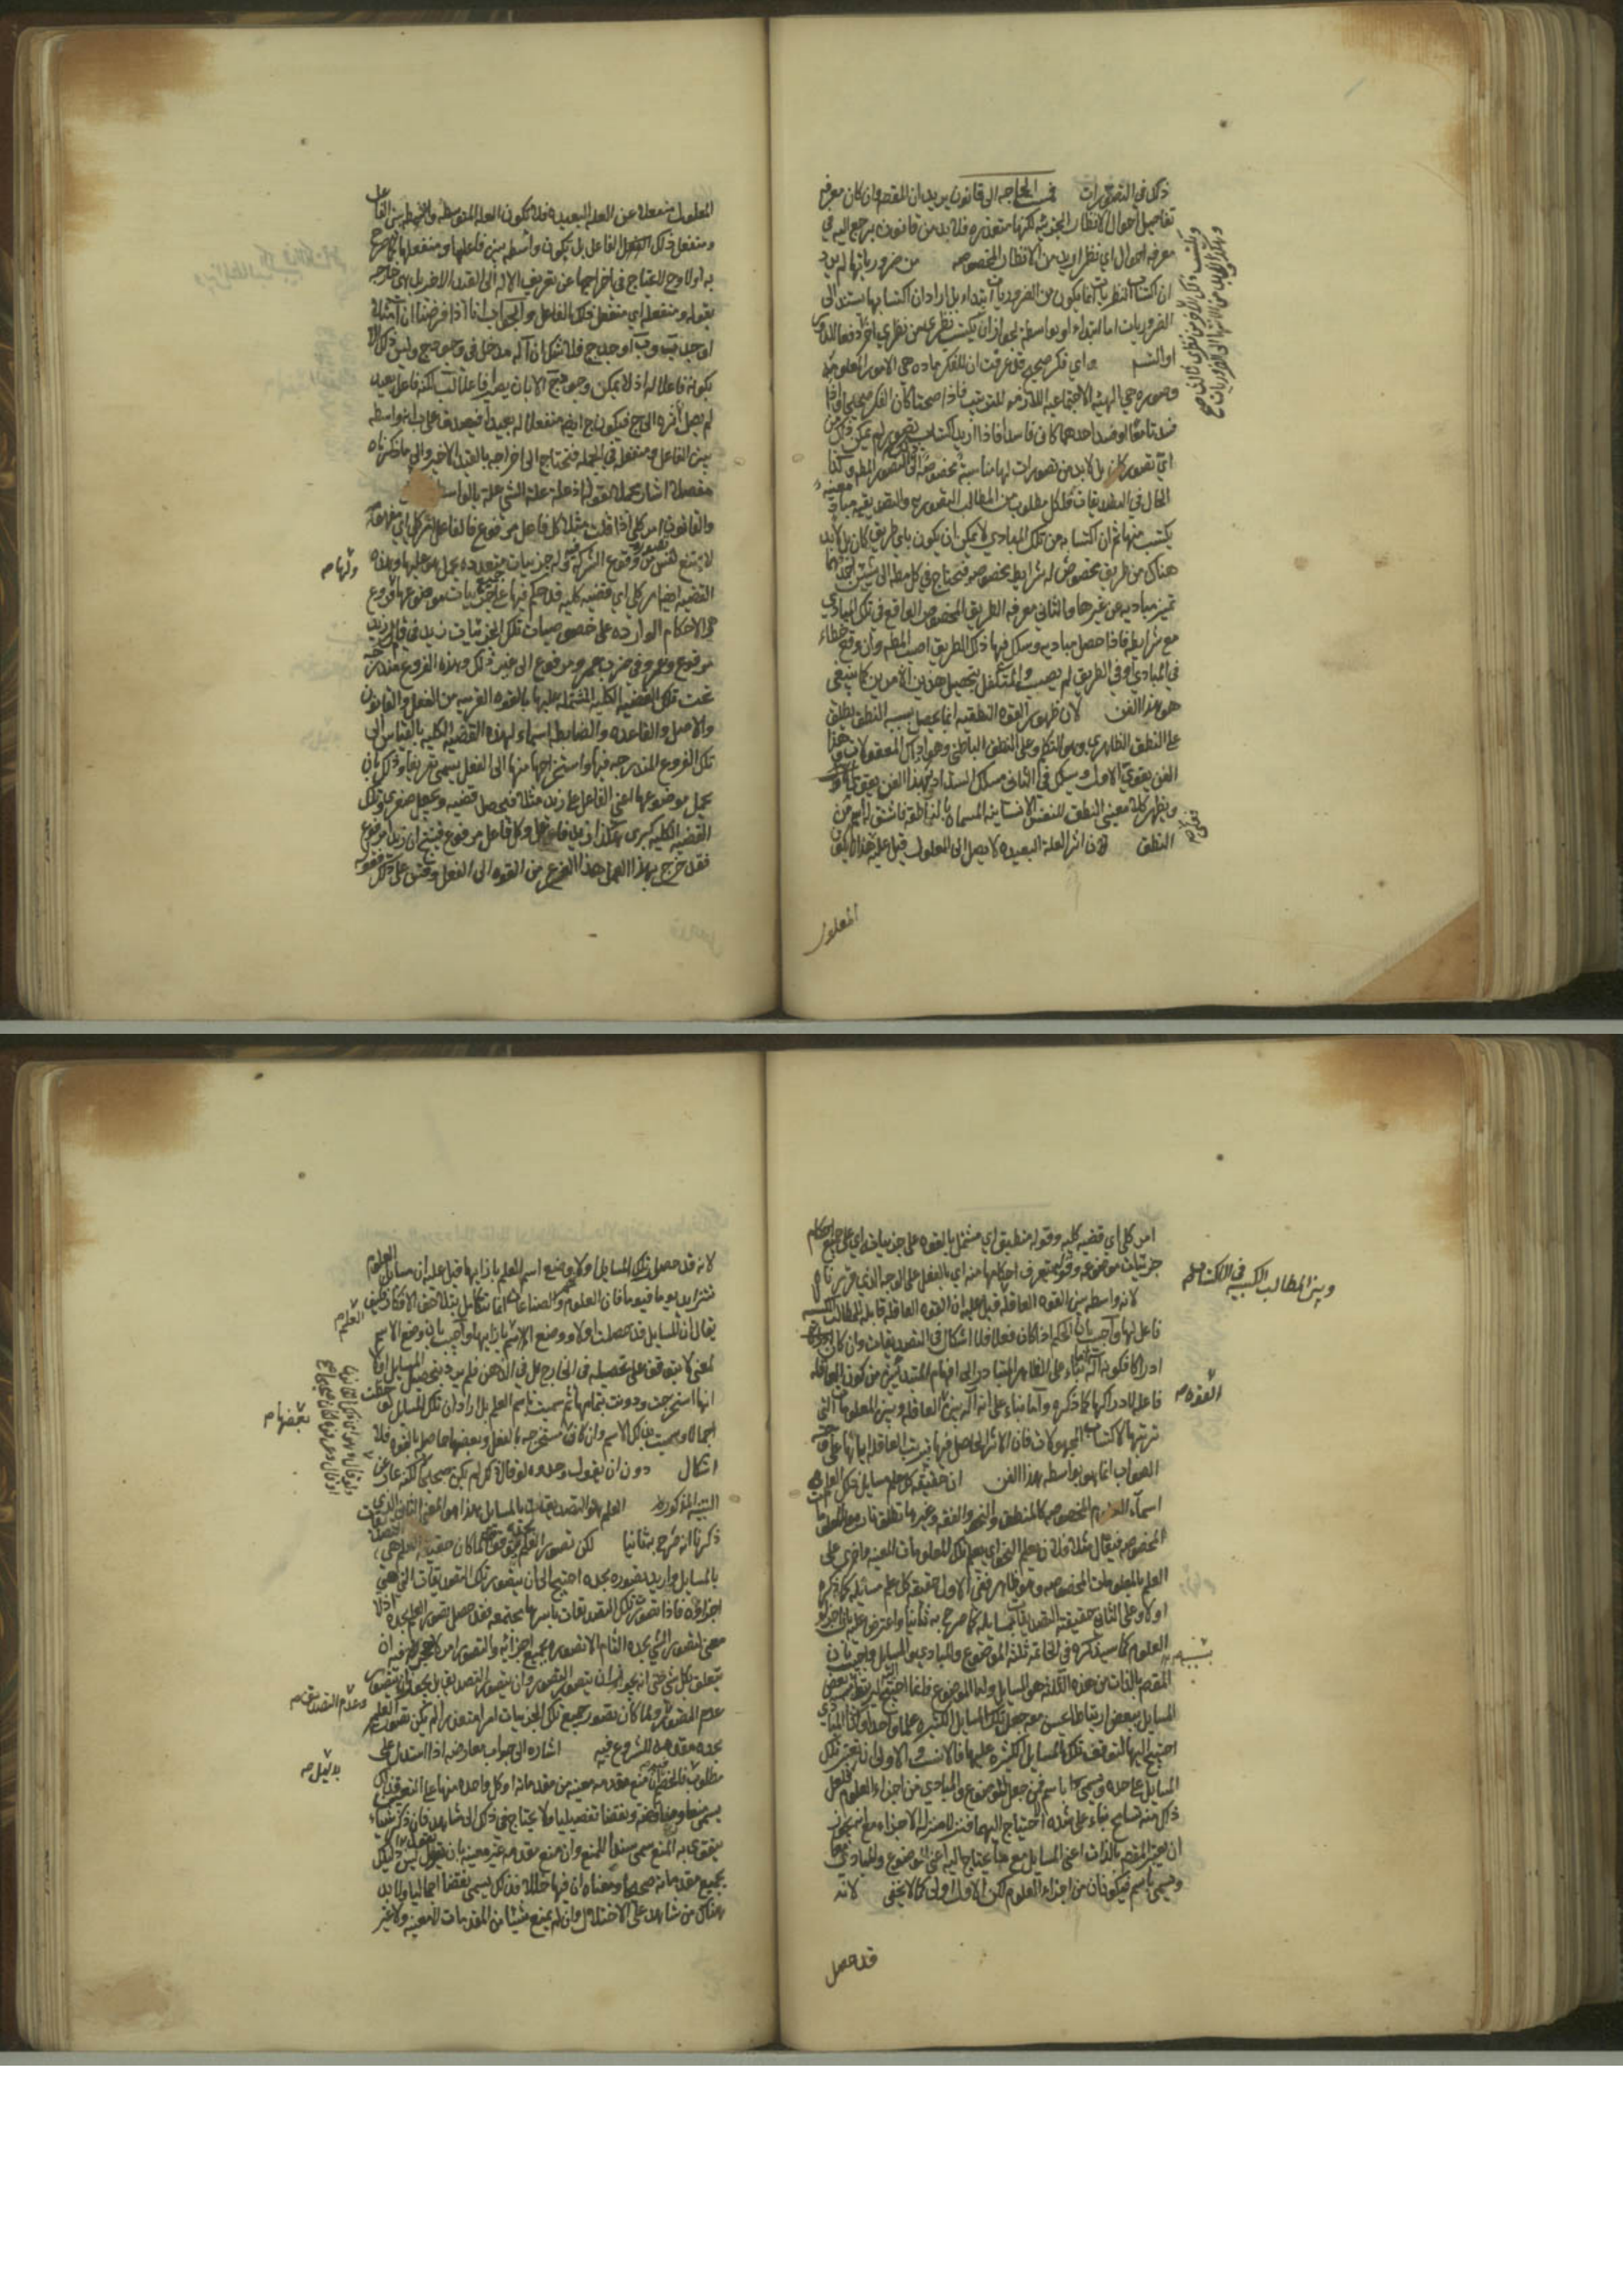 ذلك في التصورات فمست الحاجة الى قانون يريد ان المقصود وان كان معرفه
تفاصيل احوال الانظار الجزئيه لكنها متعذره فلا بد من قانون يرجع اليه في
معرفه احوال اي نظر اريد من الانظار المخصوصه من ضرورياتها لم يرد
ان اكتساب النظريات انما يكون من الضروريات ابتداء بل اراد ان اكتسابها يستند الى
الضروريات اما ابتداء او بواسطه لجواز ان يكتسب نظري من نظري اخر دفعا للدور
او التسلسل واي فكر صحيح قد عرفت ان للفكر ماده هي الامور المعلومه
وصوره هي الهيئه الاجتماعيه اللازمه للترتيب فاذا صحتا كان الفكر صحيحا واذا
فسدتا معا او فسد احدهما كان فاسدا فاذا اريد اكتساب تصور لم يمكن ذلك من
اي تصور كان بل لا بد من تصورات لها مناسبة مخصوصة الى التصور المط وكذا
الحال في التصديقات فلكل مطلوب من المطالب التصوريه والتصديقيه مباد معينه
يكتسب منها ثم ان اكتسابه من تلك المبادي لا يمكن ان يكون باي طريق كان بل لا بد
هناك من طريق مخصوص له شرايط مخصوصه فتحتاج في كل مط الى شيئين احدهما
تميز مباديه عن غيرها والثاني معرفه الطريق المخصوص الواقع في تلك المبادي
مع شرايطه فاذا حصل مباديه وسلك فيها ذلك الطريق اصيب المط وان وقع خطاء
في المبادي او في الطريق لم يصب والمتكفل بتحصيل هذين الامرين كما ينبغي
هو هذا الفن لان ظهور القوه النطقيه انما يحصل بسببه النطق يطلق
على النطق الظاهري وهو التكلم وعلى النطق الباطني وهو ادراك المعقولات وهذا
الفن يقوي الاول ويسلك في الثاني مسلك السداد فبهذا الفن يتقوى
ويظهر كلا معنيي النطق للنفس الانسانيه المسماة بالناطقه فاشتق له اسم من
النطق لان اثر العلة البعيده لا يصل الى المعلول قيل عليه هذا لا يلزم
المعلول
المعلول منفعلا عن العله البعيده فلا تكون العله المتوسطه واسطه بين الفاعل
ومنفعل ذلك الفاعل بل تكون واسطه بين فاعلها ومنفعلها
به اولا وح لا يحتاج في اخراجها عن تعريف الاله الى القيد الاخير بل هي خارجه
بقوله ومنفعله اي منفعل ذلك الفاعل والجواب انا اذا فرضنا ان آ مثلا
اوجد ب و ب اوجد ج فلا شك ان آ له مدخل في وجود ج وليس ذلك الا
بكونه فاعلا له اذ لا يمكن وجود ج الا بان يصير فاعلا لب لكنه فاعل بعيد
لم يصل اثره الى ج فيكون ج ايضا منفعلا له بعيدا فيصدق على ب انه واسطه
بين الفاعل ومنفعله في الجمله فتحتاج الى اخراجه بالقيد الاخير والى ما ذكرناه
مفصلا اشار مجملا بقوله اذ علة علة الشي علة بالواسطه
والقانون امر كلي اذا قلت مثلا كل فاعل مرفوع فالفاعل امر كلي اي مفهومه
لا يمنع نفس تصوره من وقوع الشركه فيه وله جزييات متعدده يحمل هو عليها وهذه
القضيه ايضا امر كلي اي قضيه كليه قد حكم فيها على جميع جزييات موضوعها ولها فروع
هي الاحكام الوارده على خصوصيات تلك الجزئيات كزيد في قال زيد
مرفوع وعمرو في ضرب عمرو مرفوع الى غير ذلك وهذه الفروع مندرجه
تحت تلك القضيه الكليه المشتمله عليها بالقوه القريبه من الفعل والقانون
والاصل والقاعده والضابط اسماء لهذه القضيه الكليه بالقياس الى
تلك الفروع المندرجه فيها واستخراجها منها الى الفعل يسمى تفريعا وذلك بان
يحمل موضوعها اعني الفاعل على زيد مثلا فيحصل قضيه وتجعل صغرى وتلك
القضيه الكليه كبرى هكذا زيد فاعل وكل فاعل مرفوع فينتج ان زيدا مرفوع
فقد خرج بهذا العمل هذا الفرع من القوه الى الفعل وقس على ذلك
امر كلي اي قضيه كليه وقوله منطبق اي مشتمل بالقوه على جزئياته اي على جميع احكام
جزئيات موضوعه وقوله يتعرف احكامها منه اي بالفعل على الوجه الذي قررناه
لانه واسطه بين القوه العاقله قيل عليه ان القوه العاقله قابله للمطالب الكسبيه
وبين المطالب الكسبيه في الاكتساب
فاعل لها واجيب بان الحكم اذا كان فعلا فلا اشكال في التصديقات وان كان
ادراكا فكونه آلة انما بناء على الظاهر المتبادر الى افهام المبتدئين من كون القوه العاقله
فاعله لادراكها كما ذكره واما بناء على انه آلة بين العاقله وبين المعلومات التي
ترتبها لاكتساب المجهولات فان الاثر الحاصل فيها ترتيب العاقله اياها على وجه
الصواب انما هو بواسطه هذا الفن ان حقيقة كل علم مسايل ذلك العلم
اسماء العلوم المخصوصه كالمنطق والنحو والفقه وغيرها تطلق تارة على المعلومات
المخصوصه فيقال مثلا فلان يعلم النحو اي يعلم تلك المعلومات المعينه واخرى على
العلم بالمعلومات المخصوصه وهو ظاهر فعلى الاول حقيقه كل علم مسائله كما ذكره
اولا وعلى الثاني حقيقته التصديقات بمسايله كما صرح به ثانيا واعترض عليه بان اجزاء
العلوم كما سيذكره في الخاتمه ثلثة الموضوع والمبادي والمسايل واجيب بان
المقصود بالذات من هذه الثلاثه هي المسايل واما الموضوع فانما احتيج اليه ليرتبط بعض
المسايل ببعض ارتباطا يحسن معه جعل تلك المسايل الكثيره علما واحدا وكذا المبادي
احتيج اليها لتوقف تلك المسايل الكثيره عليها فالانسب والاولى ان يعتبر تلك
المسايل على حده ويسمى باسم فمن جعل الموضوع والمبادي من اجزاء العلوم فلعل
ذلك منه تسامح بناء على شدة احتياج اليهما فنزلا منزلة الاجزاء مع انه يجوز
ان يعتبر المقصود بالذات اعني المسايل مع ما تحتاج اليه اعني الموضوع والمبادي معا
ويسمى باسم فيكونان من اجزاء العلوم لكن الاول اولى كما لا يخفى لانه
قد حصل
لانه قد حصل تلك المسايل اولا ووضع اسم العلم بازايها قيل عليه ان مسايل العلوم
تتزايد يوما فيوما فان العلوم والصناعات انما تتكامل بتلاحق الافكار فكيف
يقال ان المسايل قد حصلت اولا ووضع الاسم بازايها واجيب بان وضع الاسم
لمعنى لا يتوقف على تحصيله في الخارج بل في الذهن فلم يرد بتحصيل المسايل اولا
انها استخرجت ودونت بتمامها ثم سميت باسم العلم بل اراد ان تلك المسايل لوحظت
اجمالا وسميت بذلك الاسم وان كان بعضها مستخرجه بالفعل وبعضها حاصل بالقوه فلا
اشكال دون ان يقول وحده لو قال ذلك لم يكن صحيحا لكنه عار عن
التنبيه المذكور العلم هو التصديقات بالمسايل هذا هو المعنى الثاني الذي
ذكرنا انه صرح به ثانيا لكن تصور العلم بحده لما كان حقيقه العلم هي التصديقات
بالمسايل واريد تصوره بحده احتيج الى ان يتصور تلك التصديقات التي هي
اجزاؤه فاذا تصور تلك التصديقات باسرها مجتمعه فقد حصل تصور العلم بحده اذ لا
معنى لتصور الشي بحده التام الا تصوره بجميع اجزائه والتصور امر لا حجر فيه اذ
يتعلق بكل شي حتى انه يجوز ان يتصور التصور وان يتصور التصديق بل يجوز ان يتصور
عدم التصور وعدم التصديق ولما كان تصور جميع تلك الجزئيات امرا متعذرا لم يكن تصور العلم
بحده مقدمه للشروع فيه اشاره الى جواب معارضه اذا استدل على
مطلوب بدليل فالخصم ان منع مقدمه معينه من مقدماته او كل واحده منها على التعيين فذلك
يسمى منعا ومناقضة ونقضا تفصيليا ولا يحتاج في ذلك الى شاهد فان ذكر شيئا
يتقوى به المنع سمي سندا للمنع وان منع مقدمه غير معينه بان يقول ليس دليلك
بجميع مقدماته صحيحا ومعناه ان فيها خللا فذلك يسمى نقضا اجماليا ولا بد
هناك من شاهد على الاختلال وان لم يمنع شيئا من المقدمات لا معينه ولا غير